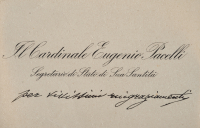 Il Cardinale Eugenio Pacelli
Segretario di Stato di Sua Santità
per vivissimi ringraziamenti